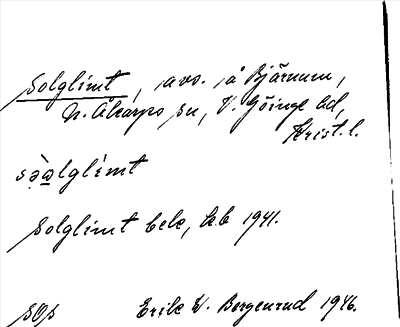 Solglimt, avs. å Bjärnum,
N. Åkarps sn, V. Göinge hd,
Krist. l.
sə̀ɷlglímt
Solglimt bek, kb 1941.
SOs Erik W. Bergenrud 1946.